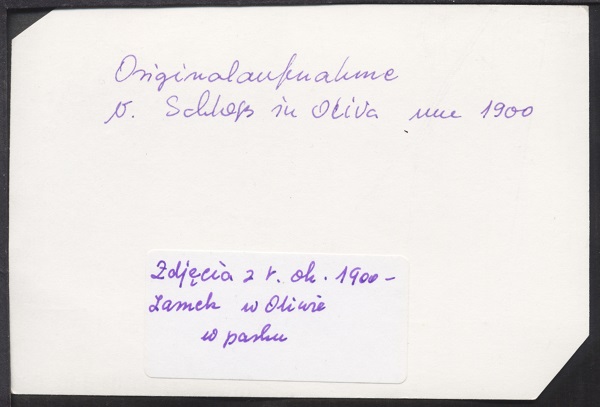 Originalaufnahme
v. Schloß in Oliva um 1900
Zdjęcia z r. ok. 1900 -
Zamek w Oliwie
w parku